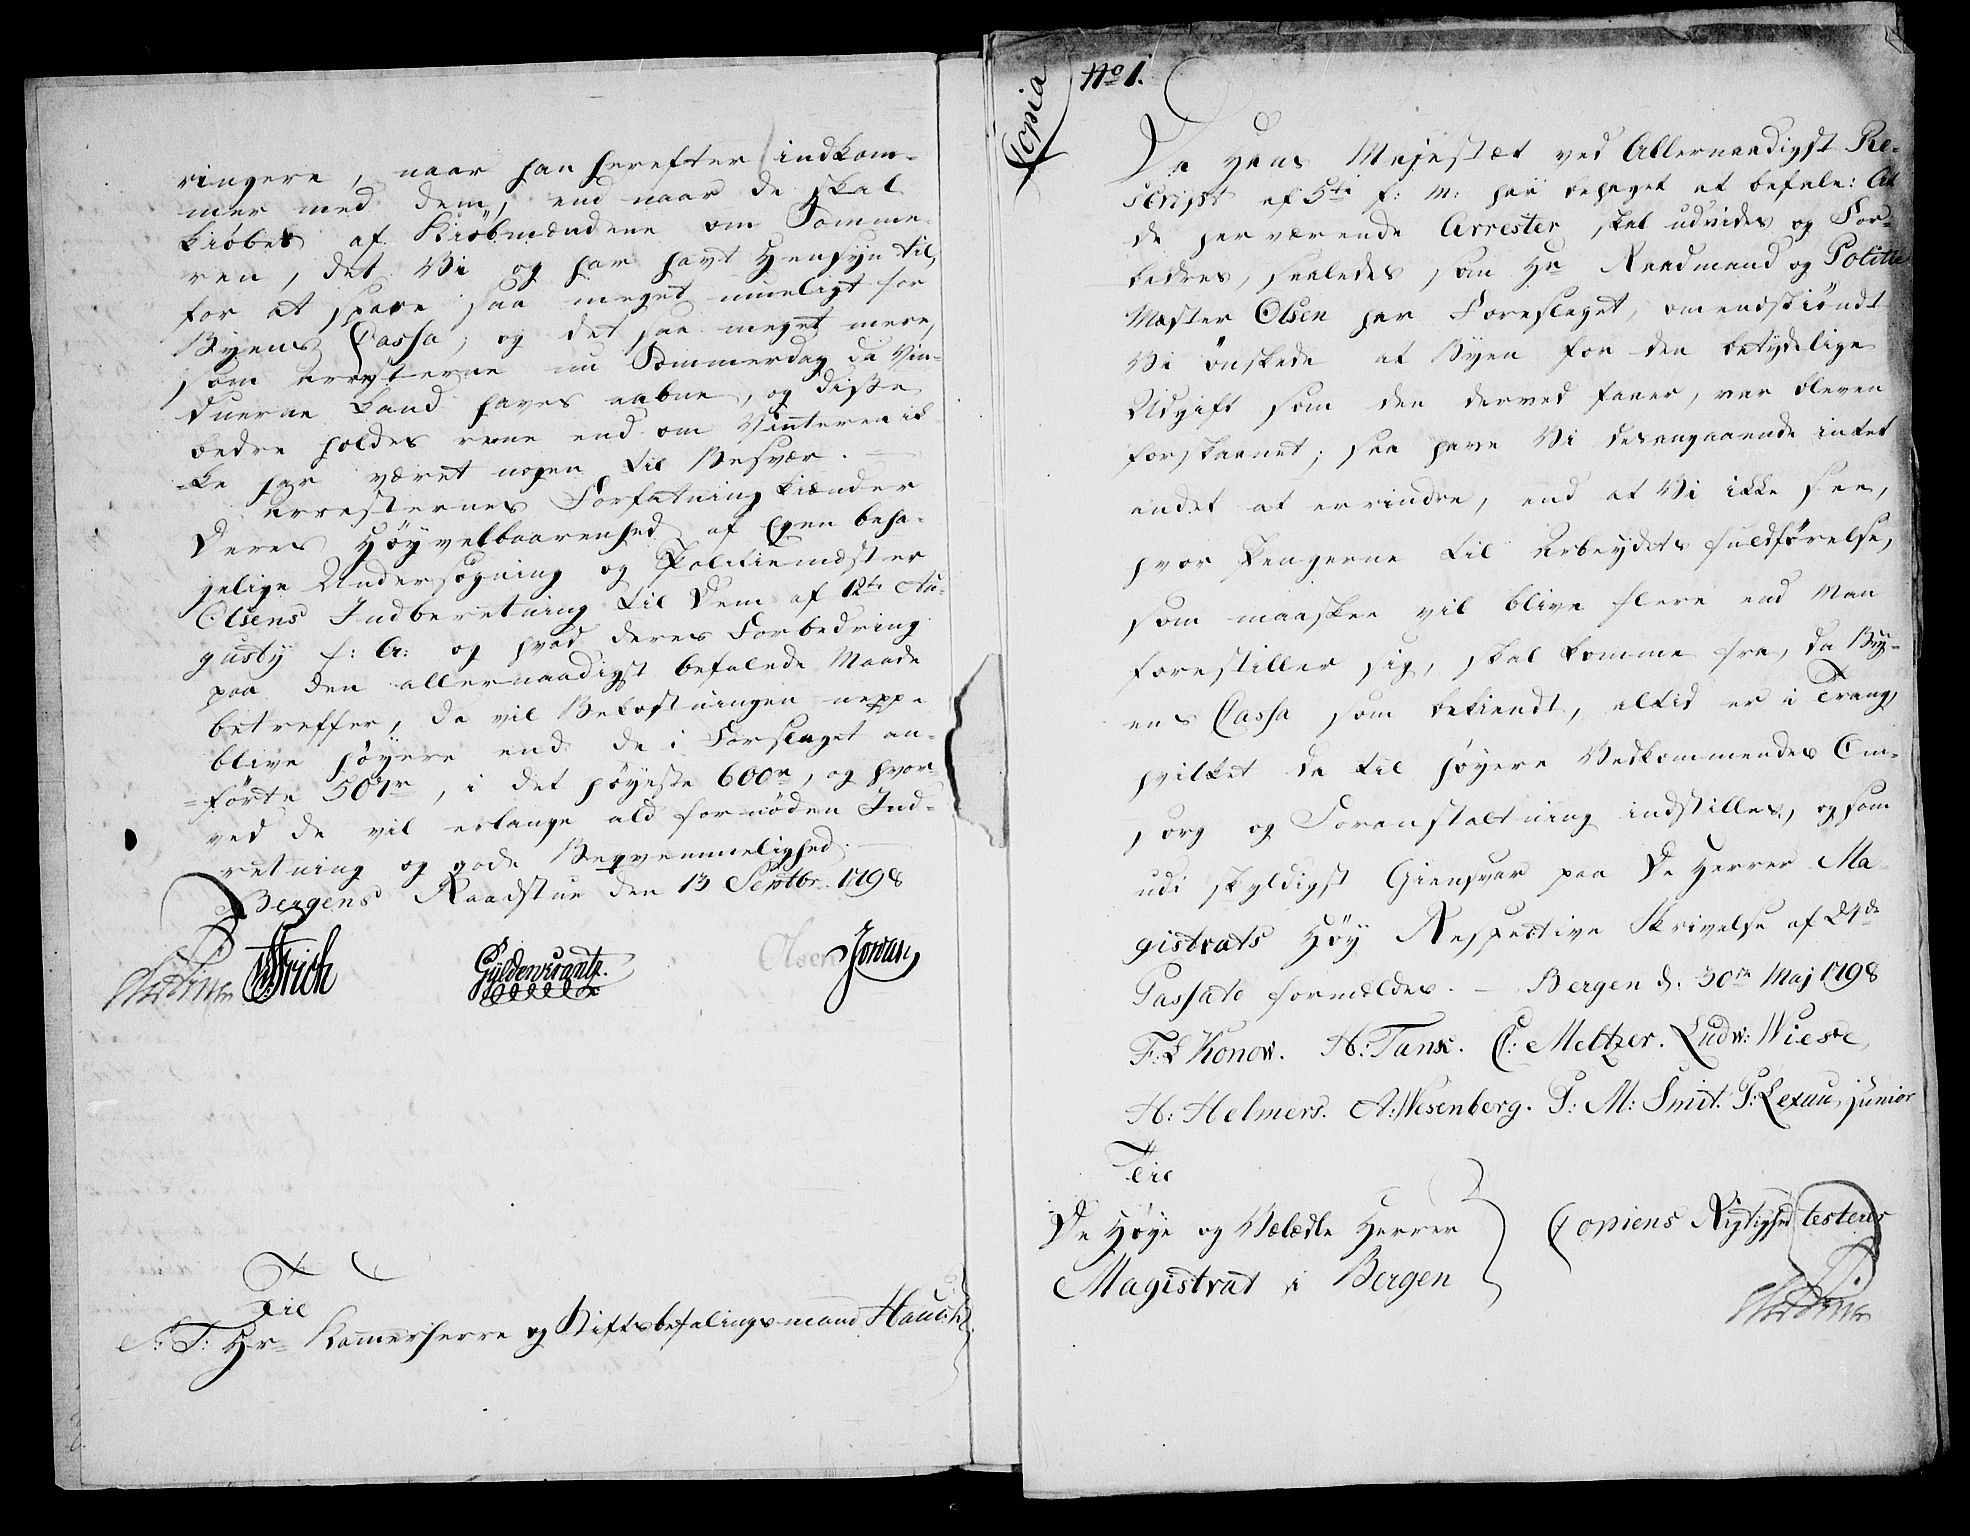 ringere, naar han herefter indkom-
mer med dem, end naar de skal
kiøbes af Kiøbmændene om Somme-
ren, det Vi og har havt Hensyn til,
for at spare saa meget mueligt for
Byens Cassa, og det saa meget mere,
som Arresterne nu Sommerdag da Vin-
duerne kand haves aabne, og disse
bedre holdes rene end om Vinteren ik-
ke har været nogen til Besvær. —
Arresternes Forfatning kiænder
Deres Høyvelbaarenhed af Egen beha-
gelige Undersøgning og Politiemæster
Olsens Indberetning til Dem af 12te Au-
gusty f: A: og hvad deres Forbedring
paa den allernaadigst befalede Maade
betreffer, da vil Bekostningen neppe
blive høyere end de i Forslaget an-
førte 507 rr, i det høyeste 600 rr, og hvor-
ved de vil erlange ald fornøden Ind-
retning og gode Beqvemmelighed. —
Bergens Raadstue den 13 Septbr. 1798
Frich Gyldenkrantz. Olsen Jowan
Til
S: T: Hr Kammerherre og Stiftsbefalingsmand Hauch
Copia
No 1.
Da Hans Majestæt ved Allernaadigst Re-
script af 5te f: M: har behaget at befale: At
de herværende Arrester skal udvides og For-
bedres, saaledes som Hr Raadmand og Politie
Mæster Olsen har Foreslaget, omendskiøndt
Vi ønskede at Byen for den betydelige
Udgift som den derved faaer, var bleven
forskaanet; saa have Vi desangaaende intet
andet at errindre, end at Vi ikke see,
hvor Pengerne til Arbeydets fuldførelse,
som maaskee vil blive flere end Man
forestiller sig, skal komme fra, da By-
ens Cassa som bekiendt, altid er i Trang,
hvilket da til høyere Vedkommendes Om-
sorg og Foranstaltning indstilles, og som
udi skyldigst Giensvar paa De Herrer Ma-
gistrats Høy Respective Skrivelse af 24de
Passato formældes. — Bergen d. 30te Maj 1798
F: L Konow. H: Tank. C: Meltzer. Ludv: Wiese
H: Helmers. A: Wesenberg. P: M: Smit. P: Lexau junior
Til
De Høye og Velædle Herrer
Magistrat i Bergen
Copiens Rigtighed testerer